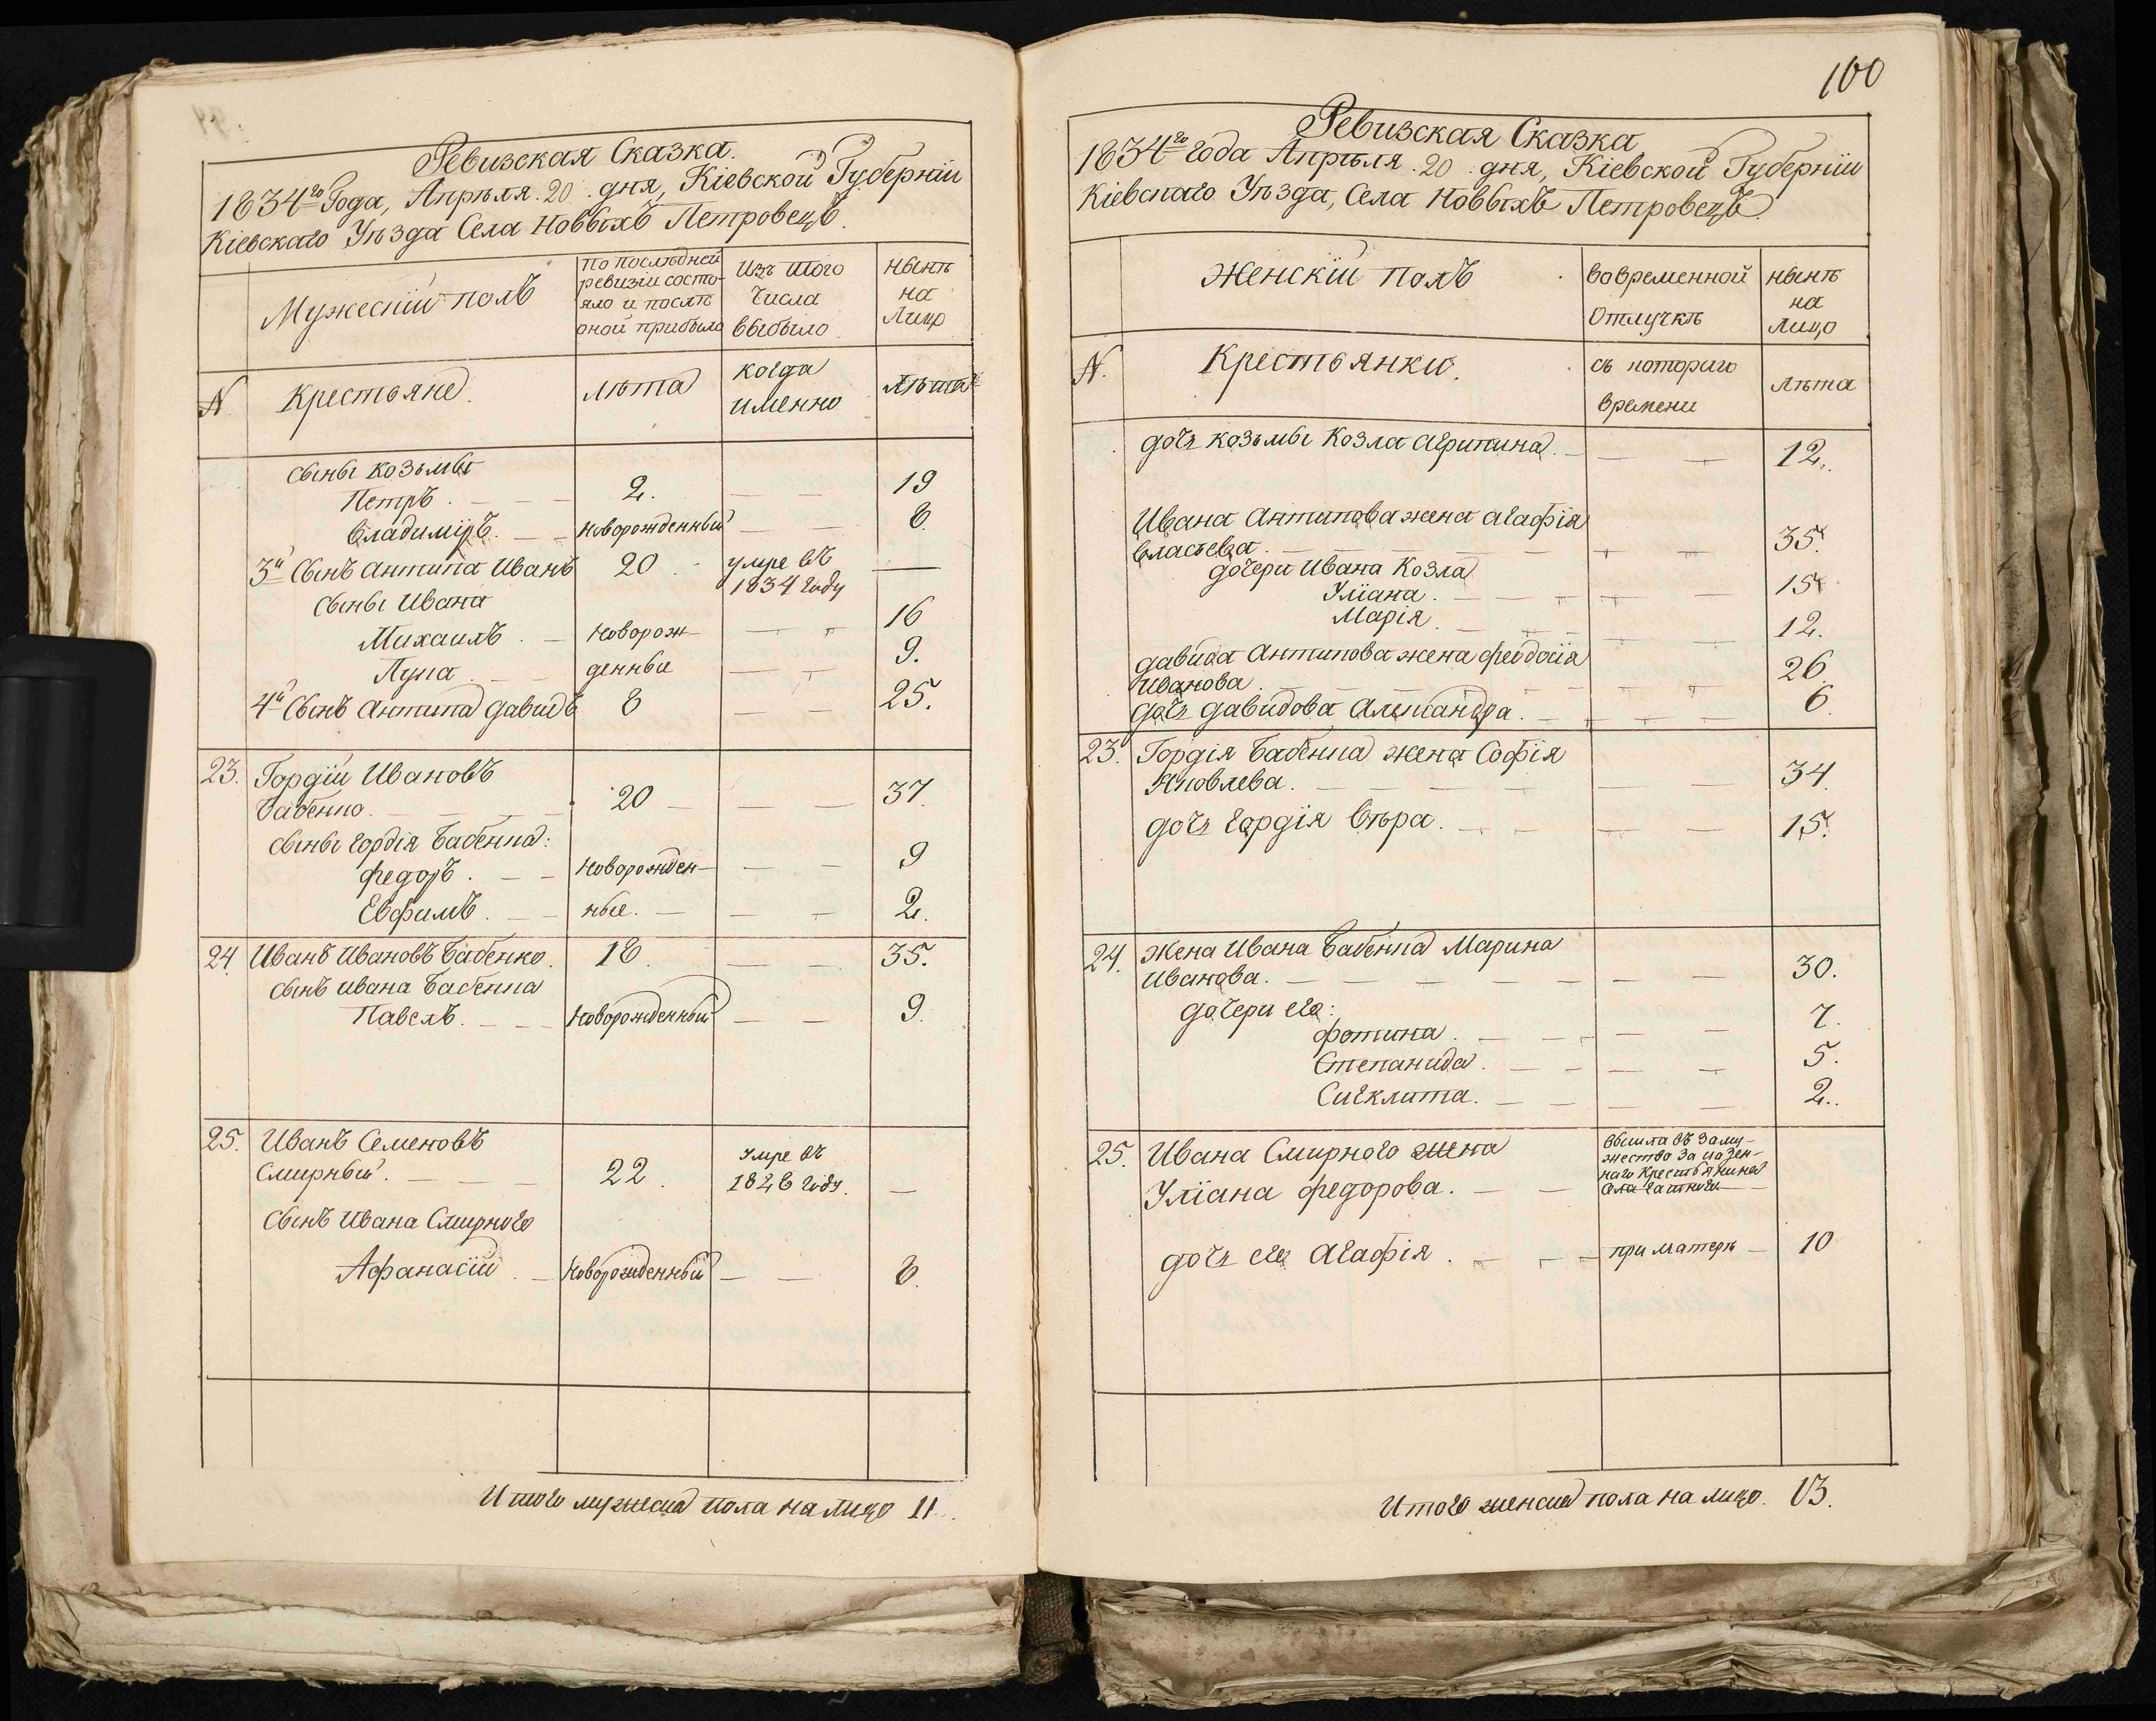 Ревизская Сказка.
1834го Года, Апрѣля 20 дня, Кіевской Губерніи
Кіевскаго Уѣзда Села Новыхъ Петровецъ.
Мужескій полъ
По послѣдней
ревизіи состо-
яло и послѣ
оной прибыло
Изъ того
числа
выбыло
нынѣ
на
Лицо
N
Крестьяне.
лѣта
когда
именно
лѣта
сыны Козьмы
Петръ. 2. 19
Владиміръ. Новорожденный 8.
3й Сынъ Антипа Иванъ 20 умре въ
1834 году
Сыны Ивана
Михаилъ Новорож- 16
Лука денные 9.
4й Сынъ Антипа Давидъ 8 25.
23. Гордій Ивановъ
Бабенко. 20 37.
сыны Гордія Бабенка:
Федоръ. Новорожден- 9
Евфимъ. ные. 2.
24. Иванъ Ивановъ Бабенко. 18. 35.
сынъ Ивана Бабенка
Павелъ. Новорожденный 9.
25. Иванъ Семеновъ
Смирный. 22. умре въ
1828 году.
Сынъ Ивана Смирного
Афанасій Новорожденный 8.
Итого мужеска пола на лицо 11.
100
Ревизская Сказка
1834го года Апрѣля 20 дня, Кіевской Губерніи
Кіевскаго Уѣзда, Села Новыхъ Петровецъ
Женскій полъ
Во временной
Отлучкѣ
нынѣ
на
Лицо
N.
Крестьянки.
съ котораго
времени
лѣта
дочь Козьмы Козла Агрипина. 12.
Ивана Антипова жена Агафія
Власьева. 35.
дочери Ивана Козла
Уліана. 15
Марія. 12.
Давида Антипова жена Феодосія
Иванова. 26.
дочь Давидова Александра. 6.
23. Гордія Бабенка жена Софія
Яковлева. 34.
дочь Гордія Вѣра. 15.
24. Жена Ивана Бабенка Марина
Иванова. 30.
дочери его:
Фотина. 7.
Степанида. 5.
Сигклита. 2.
25. Ивана Смирного жена
Уліана Федорова.
вышла въ заму-
жество за казен-
наго Крестьянина
села Гатного.
дочь его Агафія. при матерѣ 10
Итого женска пола на лицо. 13.